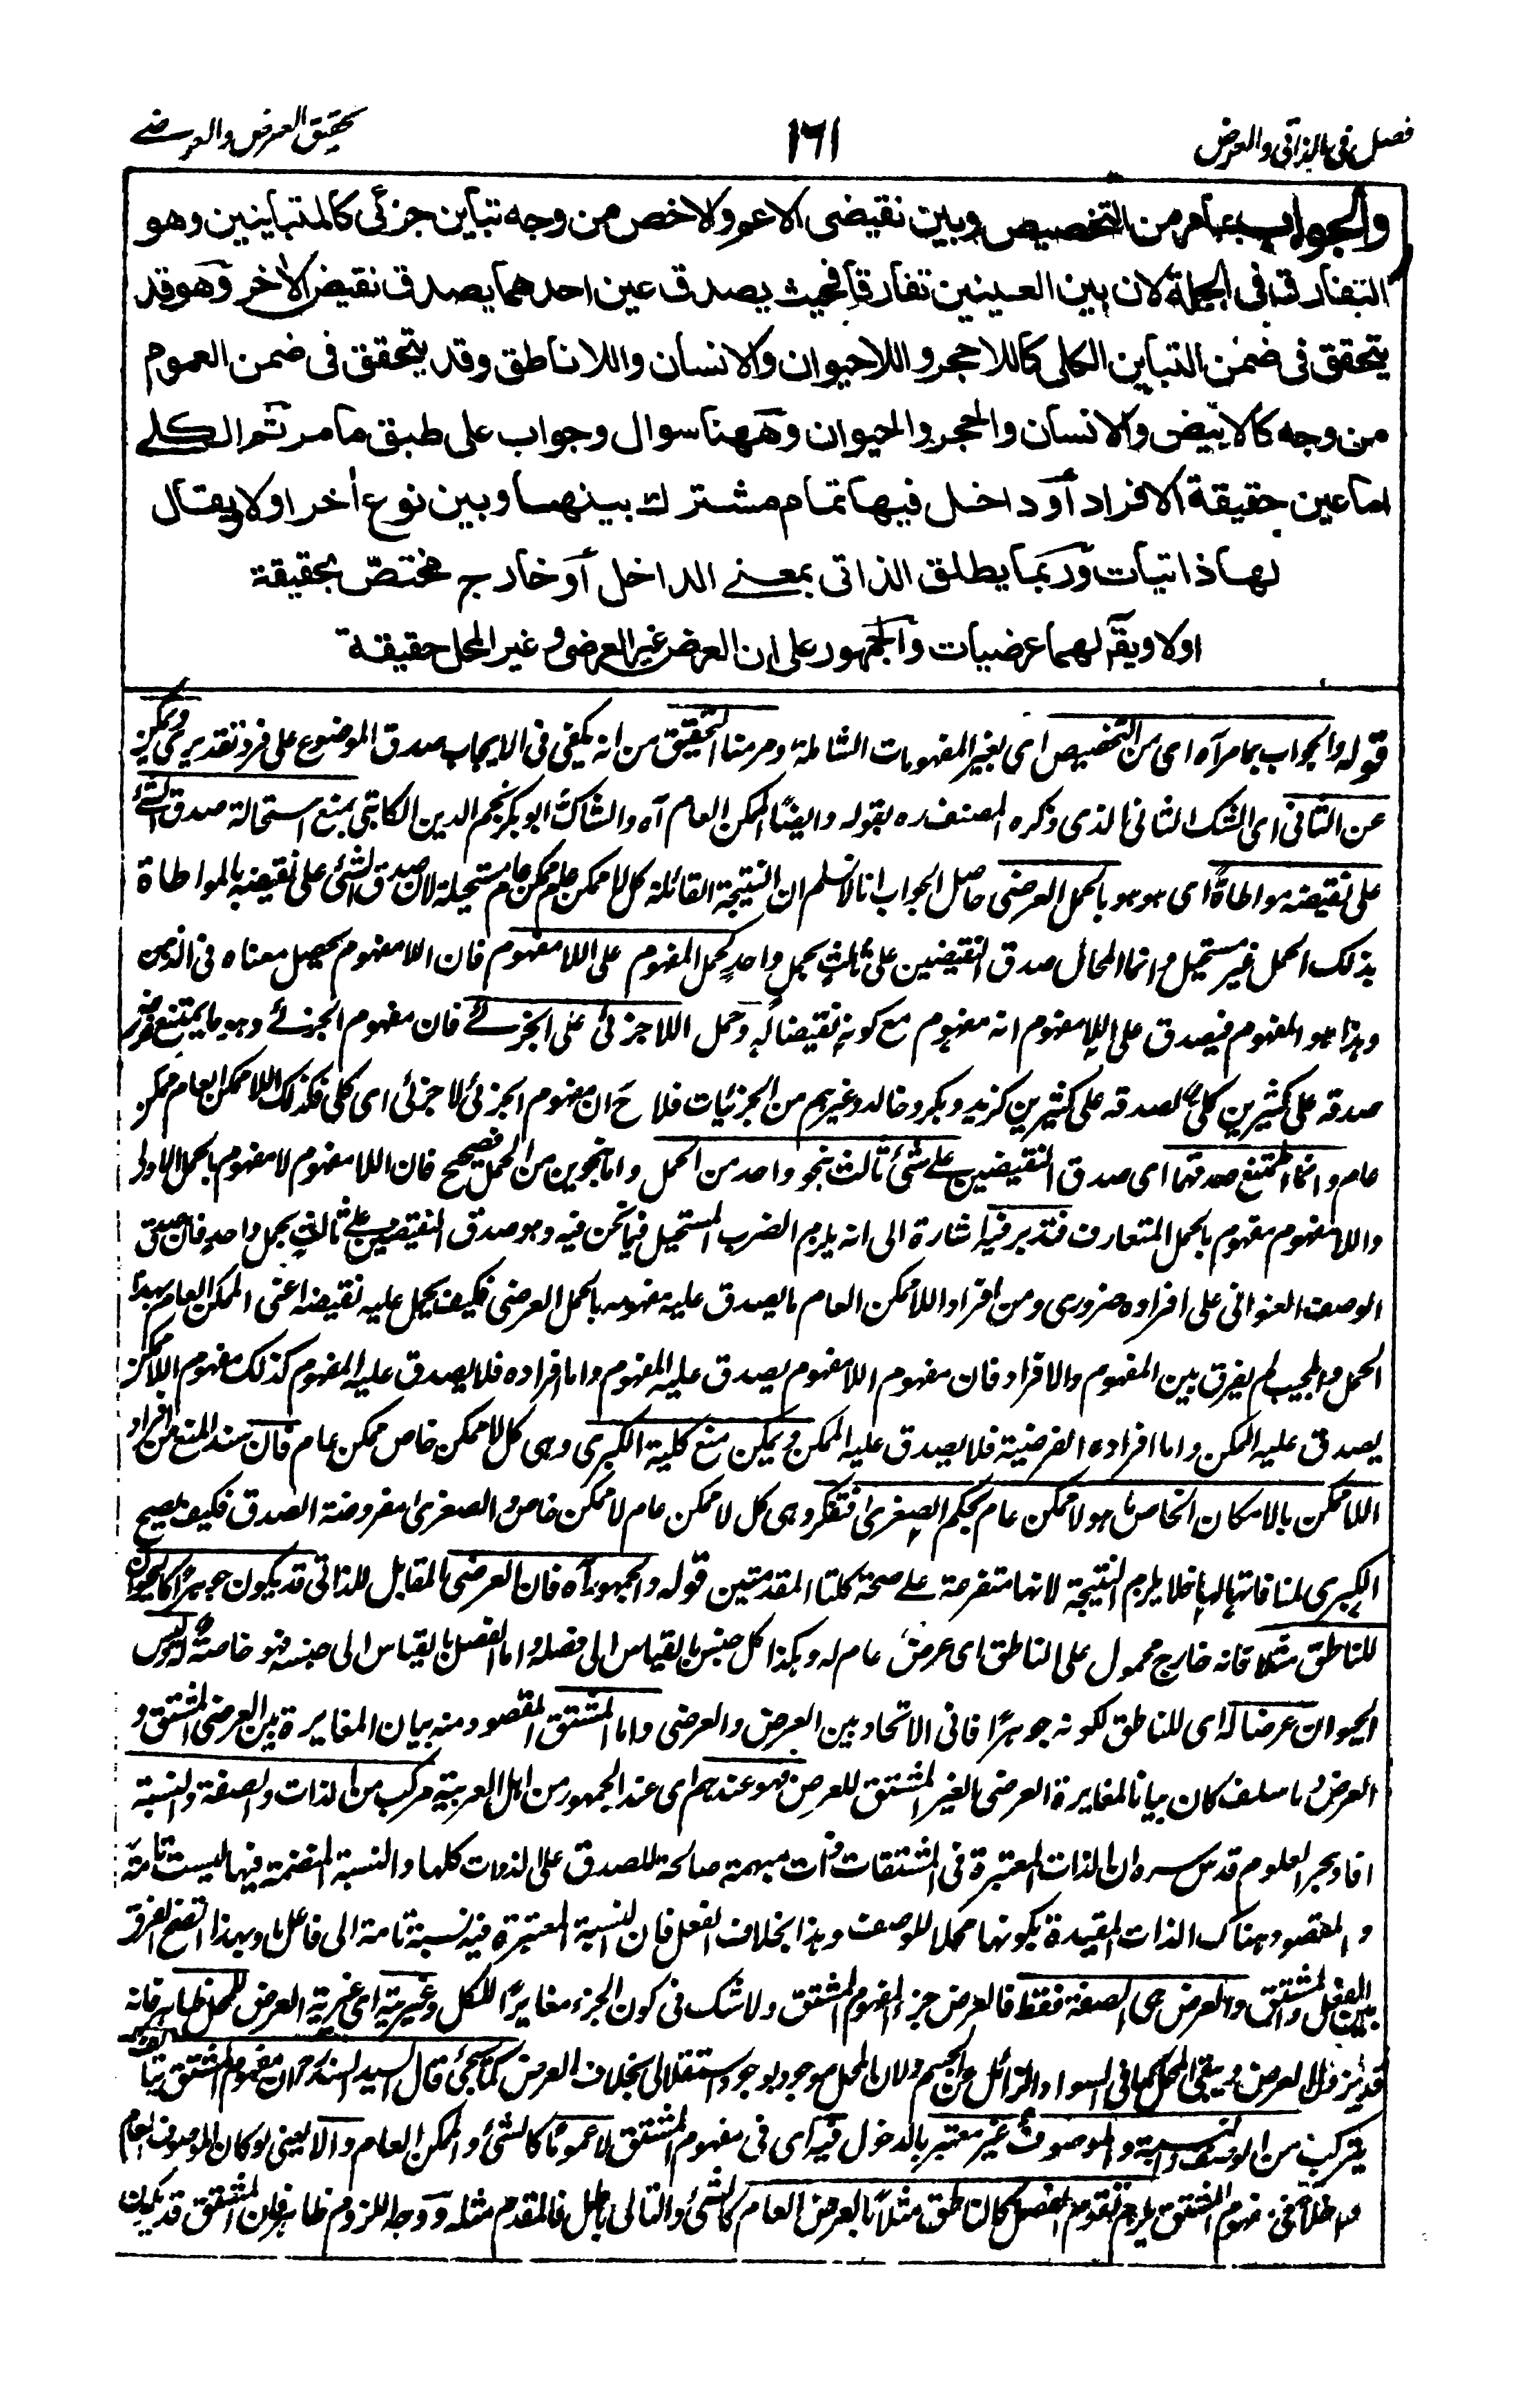 فصل فى الذاتى والعرض
١٦١
تحقيق العرض والعرضے
والجواب بمامر من التخصيص وبين نقيضى الاعم والاخص من وجه تباين جزئى كالمتباينين وهو
التفارق فى الجملة لان بين العينين تفارقا فحيث يصدق عين احدهما يصدق نقيض الاخر وهو قد
يتحقق فى ضمن التباين الكلى كاللاحجر واللاحيوان والانسان واللاناطق وقد يتحقق فى ضمن العموم
من وجه كالابيض والانسان والحجر والحيوان وههنا سوال وجواب على طبق ما مر ثم الكلے
اما عين حقيقة الافراد او داخل فيها تمام مشترك بينهما وبين نوع اخر اولا ويقال
لها ذاتيات وربما يطلق الذاتى بمعنے الداخل او خارج مختصّ بحقيقة
اولا ويقّ لهما عرضيات والجمهور على ان العرض غير العرضى وغير المحل حقيقة
قوله والجواب بمامر آه اى من التخصيص اى بغير المفهومات الشاملة ومر منا التحقيق من انه يكفى فى الايجاب صدق الموضوع على فرد تقديرى ويمكن
عن الثانى اى الشك الثانى الذى ذكره المصنف ره بقوله وايضًا الممكن العام آه والشاك ابو بكر نجم الدين الكاتبى بمنع استحالة صدق الشئ
على نقيضه مواطاةً اى هو هو بالحمل العرضى حاصل الجواب انا لا نسلم ان النتيجة القائلة كل لا ممكن عام ممكن عام مستحيلة لان صدق الشئ على نقيضه بالمواطاة
بذلك الحمل غير مستحيل وانما المحال صدق النقيضين على ثالثٍ بحمل واحدٍ كحمل المفهوم على اللامفهوم فان اللامفهوم يحصل معناه فى الذهن
وهذا هو المفهوم فيصدق على اللامفهوم انه مفهوم مع كونه نقيضا له وحمل اللاجزئى على الجزئے فان مفهوم الجزئے وهو ما يمتنع فرض
صدقه على كثيرين كلىٌّ لصدقه على كثيرين كزيد وبكر وخالد وغيرهم من الجزئيات فلا حَ ان مفهوم الجزئى لا جزئى اى كلى فكذلك اللاممكن العام ممكن
عام وانما الممتنع صدقهما اى صدق النقيضين علے شئ ثالث بنحو واحد من الحمل واما بنحوين من الحمل فصحيح فان اللامفهوم لا مفهوم بالحمل الاولى
واللامفهوم مفهوم بالحمل المتعارف فتدبر فيه اشارة الى انه يلزم الضرب المستحيل فيما نحن فيه وهو صدق النقيضين علے ثالثٍ بحمل واحدٍ فان صدق
الوصف العنوانى على افراده ضرورى ومن افراد اللاممكن العام ما يصدق عليه مفهومه بالحمل العرضى فكيف يحمل عليه نقيضه اعنى الممكن العام بهذا
الحمل والمجيب لم يفرق بين المفهوم والافراد فان مفهوم اللامفهوم يصدق عليه المفهوم واما افراده فلا يصدق عليه المفهوم كذلك مفهوم اللاممكن
يصدق عليه الممكن واما افراده الفرضية فلا يصدق عليه الممكن ويمكن منع كلية الكبرى وهى كل لا ممكن خاص ممكن عام فان سند المنع من افراد
اللاممكن بالامكان الخاص ما هو لا ممكن عام بحكم الصغرى فتفكر وهى كل لا ممكن عام لا ممكن خاص والصغرى مفروضة الصدق فكيف يصح
الكبرى لمنافاتها لها فلا يلزم النتيجة لانها متفرعة علے صحة كلتا المقدمتين قوله والجمهور آه فان العرضى المقابل للذاتى قد يكون جوهرًا كالحيوان
للناطق مثلا فانه خارج محمول على الناطق اى عرض عام له وهكذا كل جنس بالقياس الى فصله واما الفصل بالقياس الى جنسه فهو خاصةٌ له وليس
الحيوان عرضا له اى للناطق لكونه جوهرًا فانى الاتحاد بين العرض والعرضى واما المشتق المقصود منه بيان المغايرة بين العرضى المشتق و
العرض وما سلف كان بيانا لمغايرة العرضى الغير المشتق للعرض فهو عندهم اى عند الجمهور من اهل العربية مركب من الذات والصفة والنسبة
افاد بحر العلوم قدس سره ان الذات المعتبرة فى المشتقات ذات مبهمة صالحة للصدق على الذوات كلها والنسبة المنضمة فيها ليست تامّة
والمقصود هناك الذات المقيدة بكونها محلا للوصف وهذا بخلاف الفعل فان النسبة المعتبرة فيه نسبة تامة الى فاعل ما وبهذا اتضح الفرق
بين الفعل والمشتق والعرض هى الصفة فقط فالعرض جزء المفهوم المشتق ولا شك فى كون الجزء مغايرًا للكل وغيرية اى غيرية العرض للمحل ظاهر فانه
قد يزول العرض ويبقى المحل كما فى السواد الزائل عن الجسم ولان المحل موجود بوجود استقلالى بخلاف العرض كما سيجئ قال السيد السند رح ان مفهوم المشتق
يتركب من الوصف والنسبة والموصوف غير معتبر بالدخول فيه اى فى مفهوم المشتق لا عمومًا كالشئ والممكن العام والا يعنى لو كان الموصوف العام
داخلا فى مفهوم المشتق يلزم تقوم الفصل كالناطق مثلا بالعرض العام كالشئ والتالى باطل فالمقدم مثله ووجه اللزوم ظاهر فان المشتق قد يكون